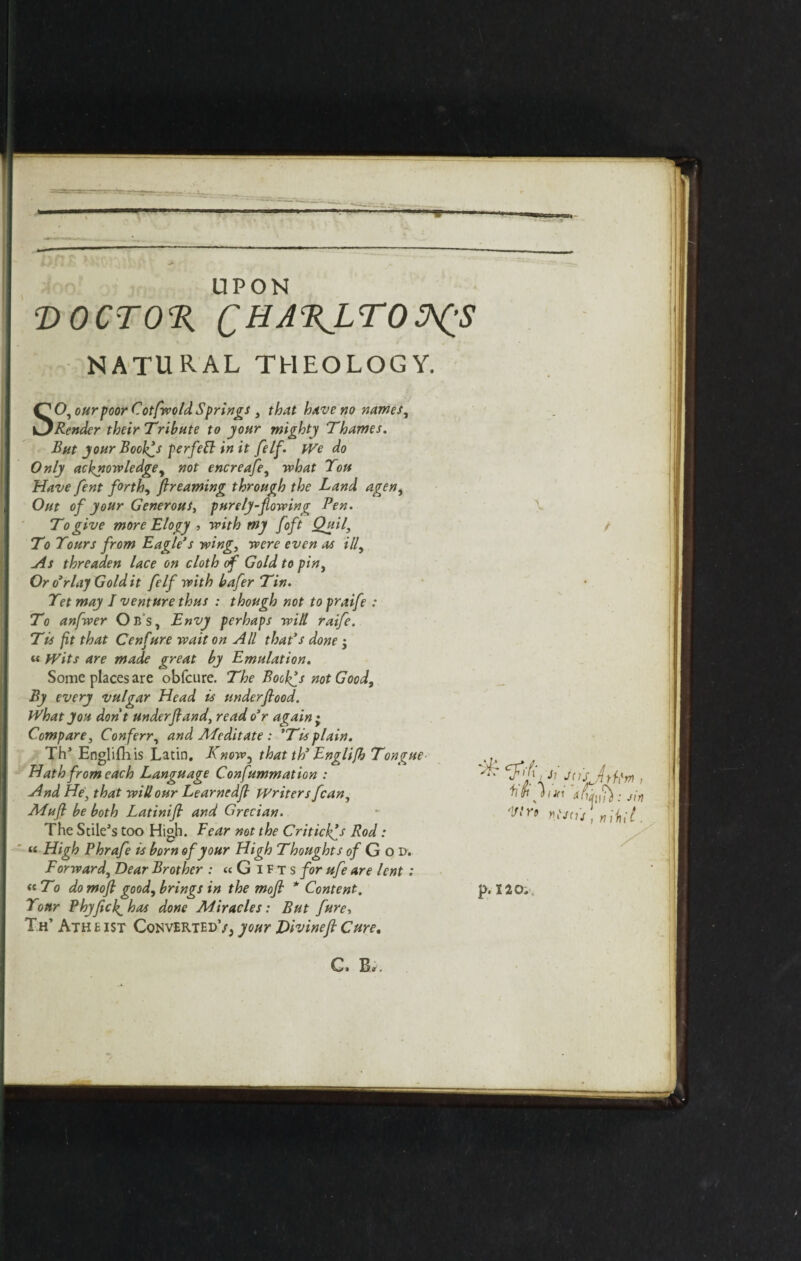 UPON
DOCTOR CHARLTON'S
NATURAL THEOLOGY.
SO, our poor Cotſwold Springs, that have no names,
Render their Tribute to your mighty Thames.
But your Book's perfect in it ſelf. We do
Only acknowledge, not encreaſe, what You
Have ſent forth, ſtreaming through the Land agen,
Out of your Generous, purely-flowing Pen.
To give more Elogy, with my ſoft Quil,
To Yours from Eagle's wing, were even as ill,
As threaden lace on cloth of Gold to pin,
Or o'rlay Gold it ſelf with baſer Tin.
Yet may I venture thus : though not to praiſe :
To anſwer OB's, Envy perhaps will raiſe.
Tis fit that Cenſure wait on All that's done ;
“ Wits are made great by Emulation.
Some places are obſcure. The Book's not Good,
By every vulgar Head is underſtood.
What you don't underſtand, read o'r again ;
Compare, Conferr, and Meditate : 'Tis plain.
Th' Engliſh is Latin. Know, that th' Engliſh Tongue
Hath from each Language Conſummation :
And He, that will our Learnedſt Writers ſcan,
Muſt be both Latiniſt and Grecian.
The Stile's too High. Fear not the Critick's Rod :
“ High Phraſe is born of your High Thoughts of GOD.
Forward, Dear Brother : “ GIFTS for uſe are lent :
“ To do moſt good, brings in the moſt * Content.
Your Phyſick has done Miracles : But ſure,
TH' ATHEIST CONVERTED's, your Divineſt Cure.
C. B.
* si
: sin
nihil.
p. 120.